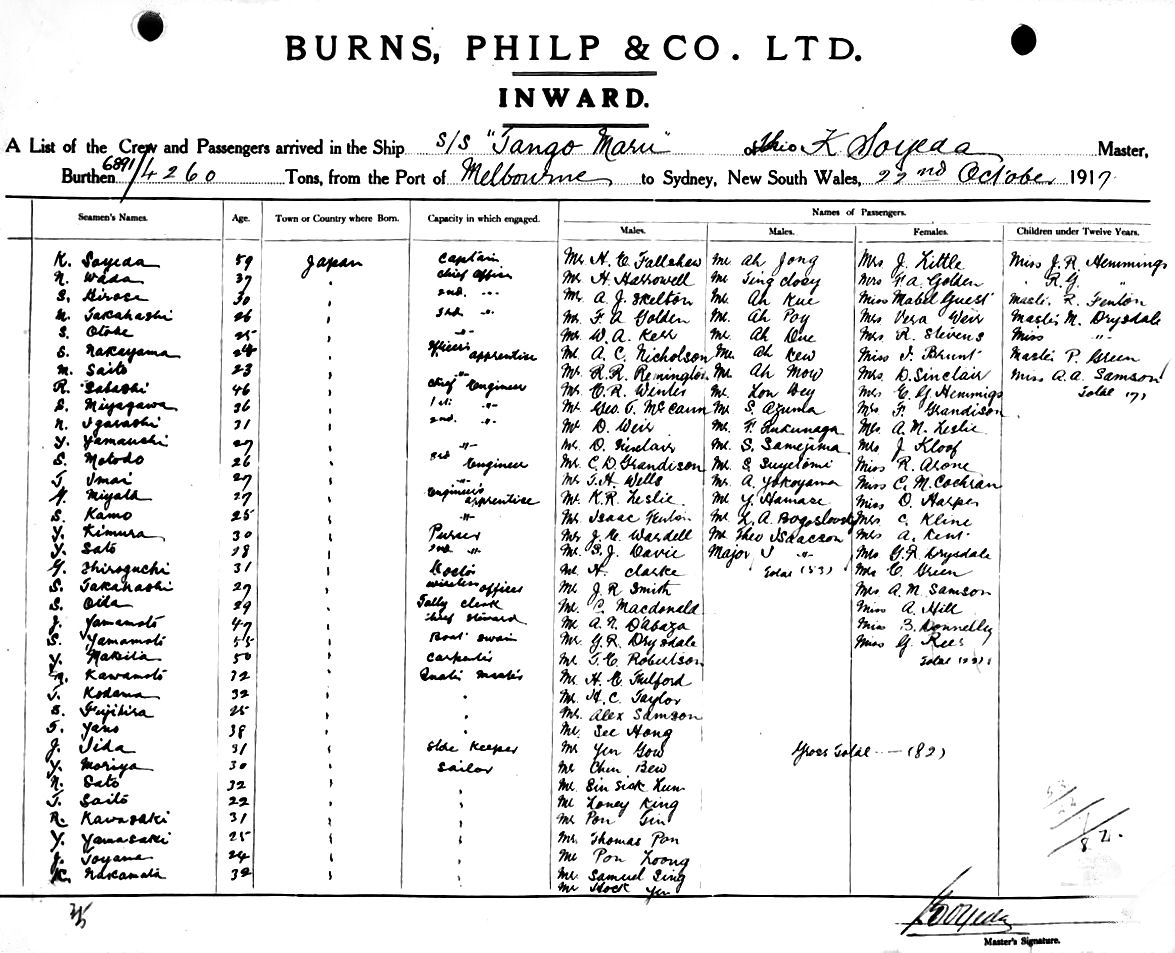 BURNS, PHILP & CO. LTD.
INWARD.
A List of the Crew and Passengers arrived in the Ship S/S "Tango Maru" of K Soyeda Master,
Burthen 6891/4260 Tons, from the Port of Melbourne to Sydney, New South Wales, 22nd October 1917
Names of Passengers.
Seamen's Names. Age. Town or Country where Born. Capacity in which engaged. Males. Males. Females. Children under Twelve Years.
K. Soyeda 59 Japan Captain Mr H. C. Fallshaw Mr Ah Jong Mrs J. Kittle Miss J. R. Hemmings
N. Wada 37 ' Chief Officer Mr H. Harrowell Mr Ting closy Mrs F. A. Golden " R.G. "
S. Hirose 30 ' 2nd. " Mr A. J. Skelton Mr Ah Kue Miss Mabel Guest Master R. Fenton
N. Takahashi 26 ' 3rd " Mr F. A Golden Mr Ah Poy Mrs Vera Weir Master M. Drysdale
S. Otobe 25 ' " Mr W. A. Kerr Mr Ah Due Mrs R. Stevens Miss "
S. Nakayama 24 ' Officers apprentice Mr A. C. Nicholson Mr Ah Kew Miss J. Brunt Master P. Green
M. Saito 23 ' Mr R. R. Remington Mr Ah Mow Mrs D. Sinclair Miss A. A. Samson
R. 46 ' Chief Engineer Mr C. R. Winter Mr Lon Hey Mrs C. G. Hemmings Total (7)
S. Miyagawa 36 ' 1st " Mr Geo. T. McCann Mr S. Azuma Mrs F. Grandison
N. Igarashi 31 ' 2nd. " Mr D. Weir Mr F. Fukunaga Mrs A. N. Leslie
Y. Yamauchi 27 ' " Mr D. Sinclair Mr S. Samejima Mrs J Kloof
S. Motodo 26 ' 3rd Engineer Mr C. D. Grandison Mr S. Suyetomi Miss R. Arone
T. Imai 27 ' " Mr T. H. Wells Mr A. Yokoyama Miss C. M. Cochran
Y. Miyata 27 ' Engineer's apprentice Mr K. R. Leslie Mr Y. Hamase Miss O. Harper
S. Kamo 25 ' " Mr Isaac Fenton Mr L. A. Bogoslovsky Mrs C. Kline
Y. Kimura 30 ' Purser Mr J. C. Wardell Mr Theo Isaacson Mrs A. Kent
Y. Sato 28 ' 2nd " Mr S. J. Davie Major J " Mrs G. R. Drysdale
Y. Shiroguchi 31 ' Doctor Mr H. Clarke Total (53) Mrs C. Green
S. Takahashi 27 ' Wireless officer Mr J. R Smith Mrs A. N. Samson
S. Oida 29 ' Tally Clerk Mr C. Macdonald Miss A. Hill
J. Yamamoto 47 ' Chief Steward Mr A. N. Dabaza Miss B. Donnelly
S. Yamamoto 55 ' Boat swain Mr G. R. Drysdale Miss G. Rees
Y. Makita 50 ' Carpenter Mr T. C. Robertson Total (22)
N. Kawamoto 32 ' Quarter Master Mr H. C. Fulford
T. Kodama 32 ' ' Mr H. C. Taylor
S. Fujihira 25 ' ' Mr Alex Samson
T. Yano 38 ' ' Mr See Hong
J. Iida 31 ' Store Keeper Mr Yen Gow Gross Total — (82)
Y. Moriya 30 ' Sailor Mr Chin Bew
N. Sato 32 ' ' Mr Sin Sick Lum
T. Saito 22 ' ' Mr Loney King
R. Kawasaki 31 ' ' Mr Pon Tin
Y. Yamasaki 25 ' ' Mr Thomas Pon
J. Toyama 24 ' ' Mr Pon Loong
K. Nakamata 32 ' ' Mr Samuel Sing
Mr Hock Yen
53/22/7/82.
35
K Soyeda
Master's Signature.